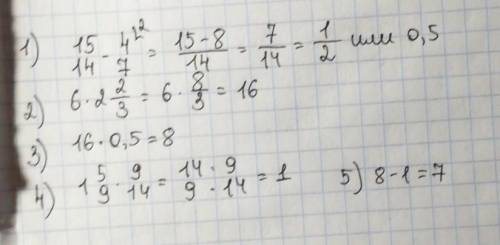 1) 15/14 - 4/7^{\2} = (15-8)/14 = 7/14 = 1/2 или 0,5
2) 6 · 2 2/3 = 6 · 8/3 = 16
3) 16 · 0,5 = 8
4) 1 5/9 · 9/14 = (14 · 9)/(9 · 14) = 1 5) 8-1=7